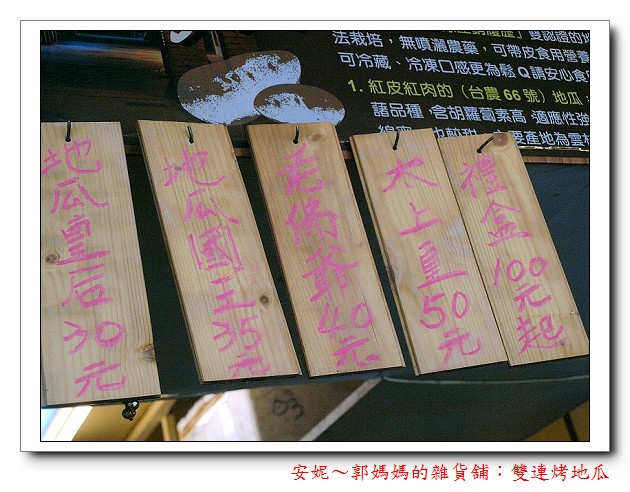 法栽培，無噴灑農藥，可帶皮食用營養
可冷藏、冷凍口感更為鬆Q請安心食
1. 紅皮紅肉的（台農66號）地瓜：
藷品種，含胡蘿蔔素高，適應性強
地瓜皇后30元
地瓜國王35元
老佛爺40元
太上皇50元
禮盒100元起
安妮～郭媽媽的雜貨鋪：雙連烤地瓜